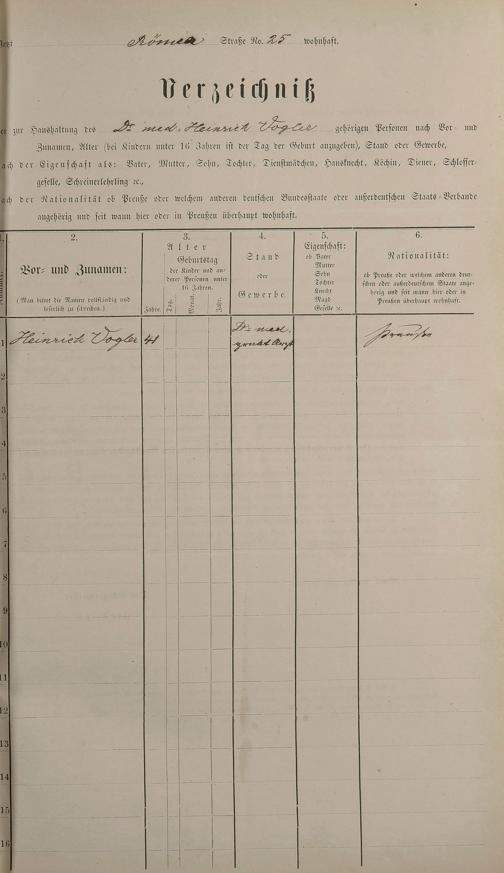 Jetzt Römer Straße No. 25 wohnhaft.
Verzeichniß
er zur Haushaltung des Dr. med. Heinrich Vogler gehörigen Personen nach Vor- und
Zunamen, Alter (bei Kindern unter 16 Jahren ist der Tag der Geburt anzugeben), Stand oder Gewerbe,
ach der Eigenschaft als: Vater, Mutter, Sohn, Tochter, Dienstmädchen, Hausknecht, Köchin, Diener, Schlosser-
geselle, Schreinerlehrling ꝛc.,
ach der Nationalität ob Preuße oder welchem anderen deutschen Bundesstaate oder außerdeutschen Staats-Verbande
angehörig und seit wann hier oder in Preußen überhaupt wohnhaft.
1.
2.
Vor- und Zunamen:
(Man bittet die Namen vollständig und
leserlich zu schreiben.)
3.
Alter
Jahre.
Geburtstag
der Kinder und an-
derer Personen unter
16 Jahren.
Tag.
Monat.
Jahr.
4.
Stand
oder
Gewerbe.
5.
Eigenschaft:
ob Vater
Mutter
Sohn
Tochter
Knecht
Magd
Geselle ꝛc.
6.
Nationalität:
ob Preuße oder welchem anderen deut-
schen oder außerdeutschen Staate ange-
hörig und seit wann hier oder in
Preußen überhaupt wohnhaft.
1 Heinrich Vogler 41 Dr. med. Preuße
prakt Arzt
2
3
4
5
6
7
8
9
10
11
12
13
14
15
16